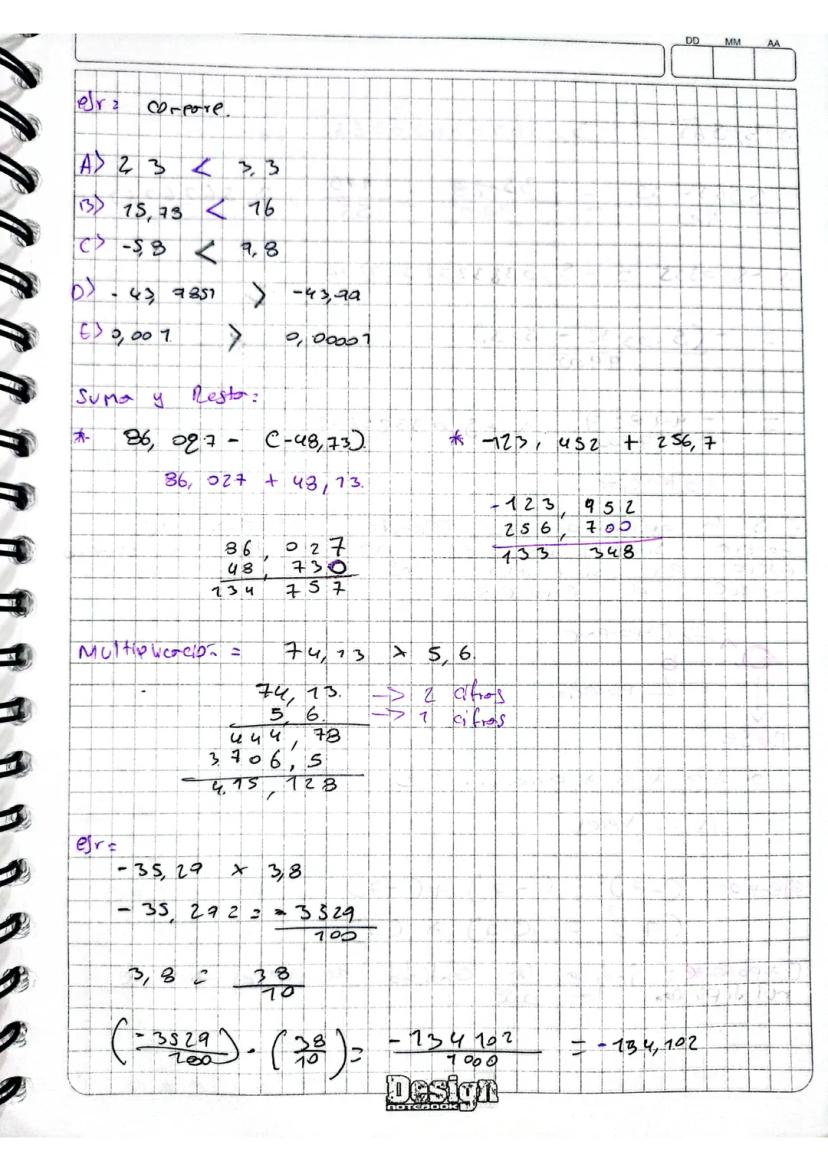 DD MM AA
ejr= compare.
A) 2 3 < 3,3
B) 15,73 < 16
C) -5,8 < 7,8
D) -43,9851 > -43,99
E) 0,001 > 0,00001
Suma y Resta:
* 86,027 - (-48,73) * -123,452 + 256,7
86,027 + 48,73.
-123,952
256,700
133 348
86,027
48,730
134 757
Multiplicación = 74,13 x 5,6.
74,13. -> 2 cifras
5,6. -> 1 cifras
444,78
3706,5
415,128
ejr=
-35,29 x 3,8
-35,292 = -3529/100
3,8 = 38/10
(-3529/100) · (38/10) = -134102/1000 = -134,102
Design
NOTEBOOK